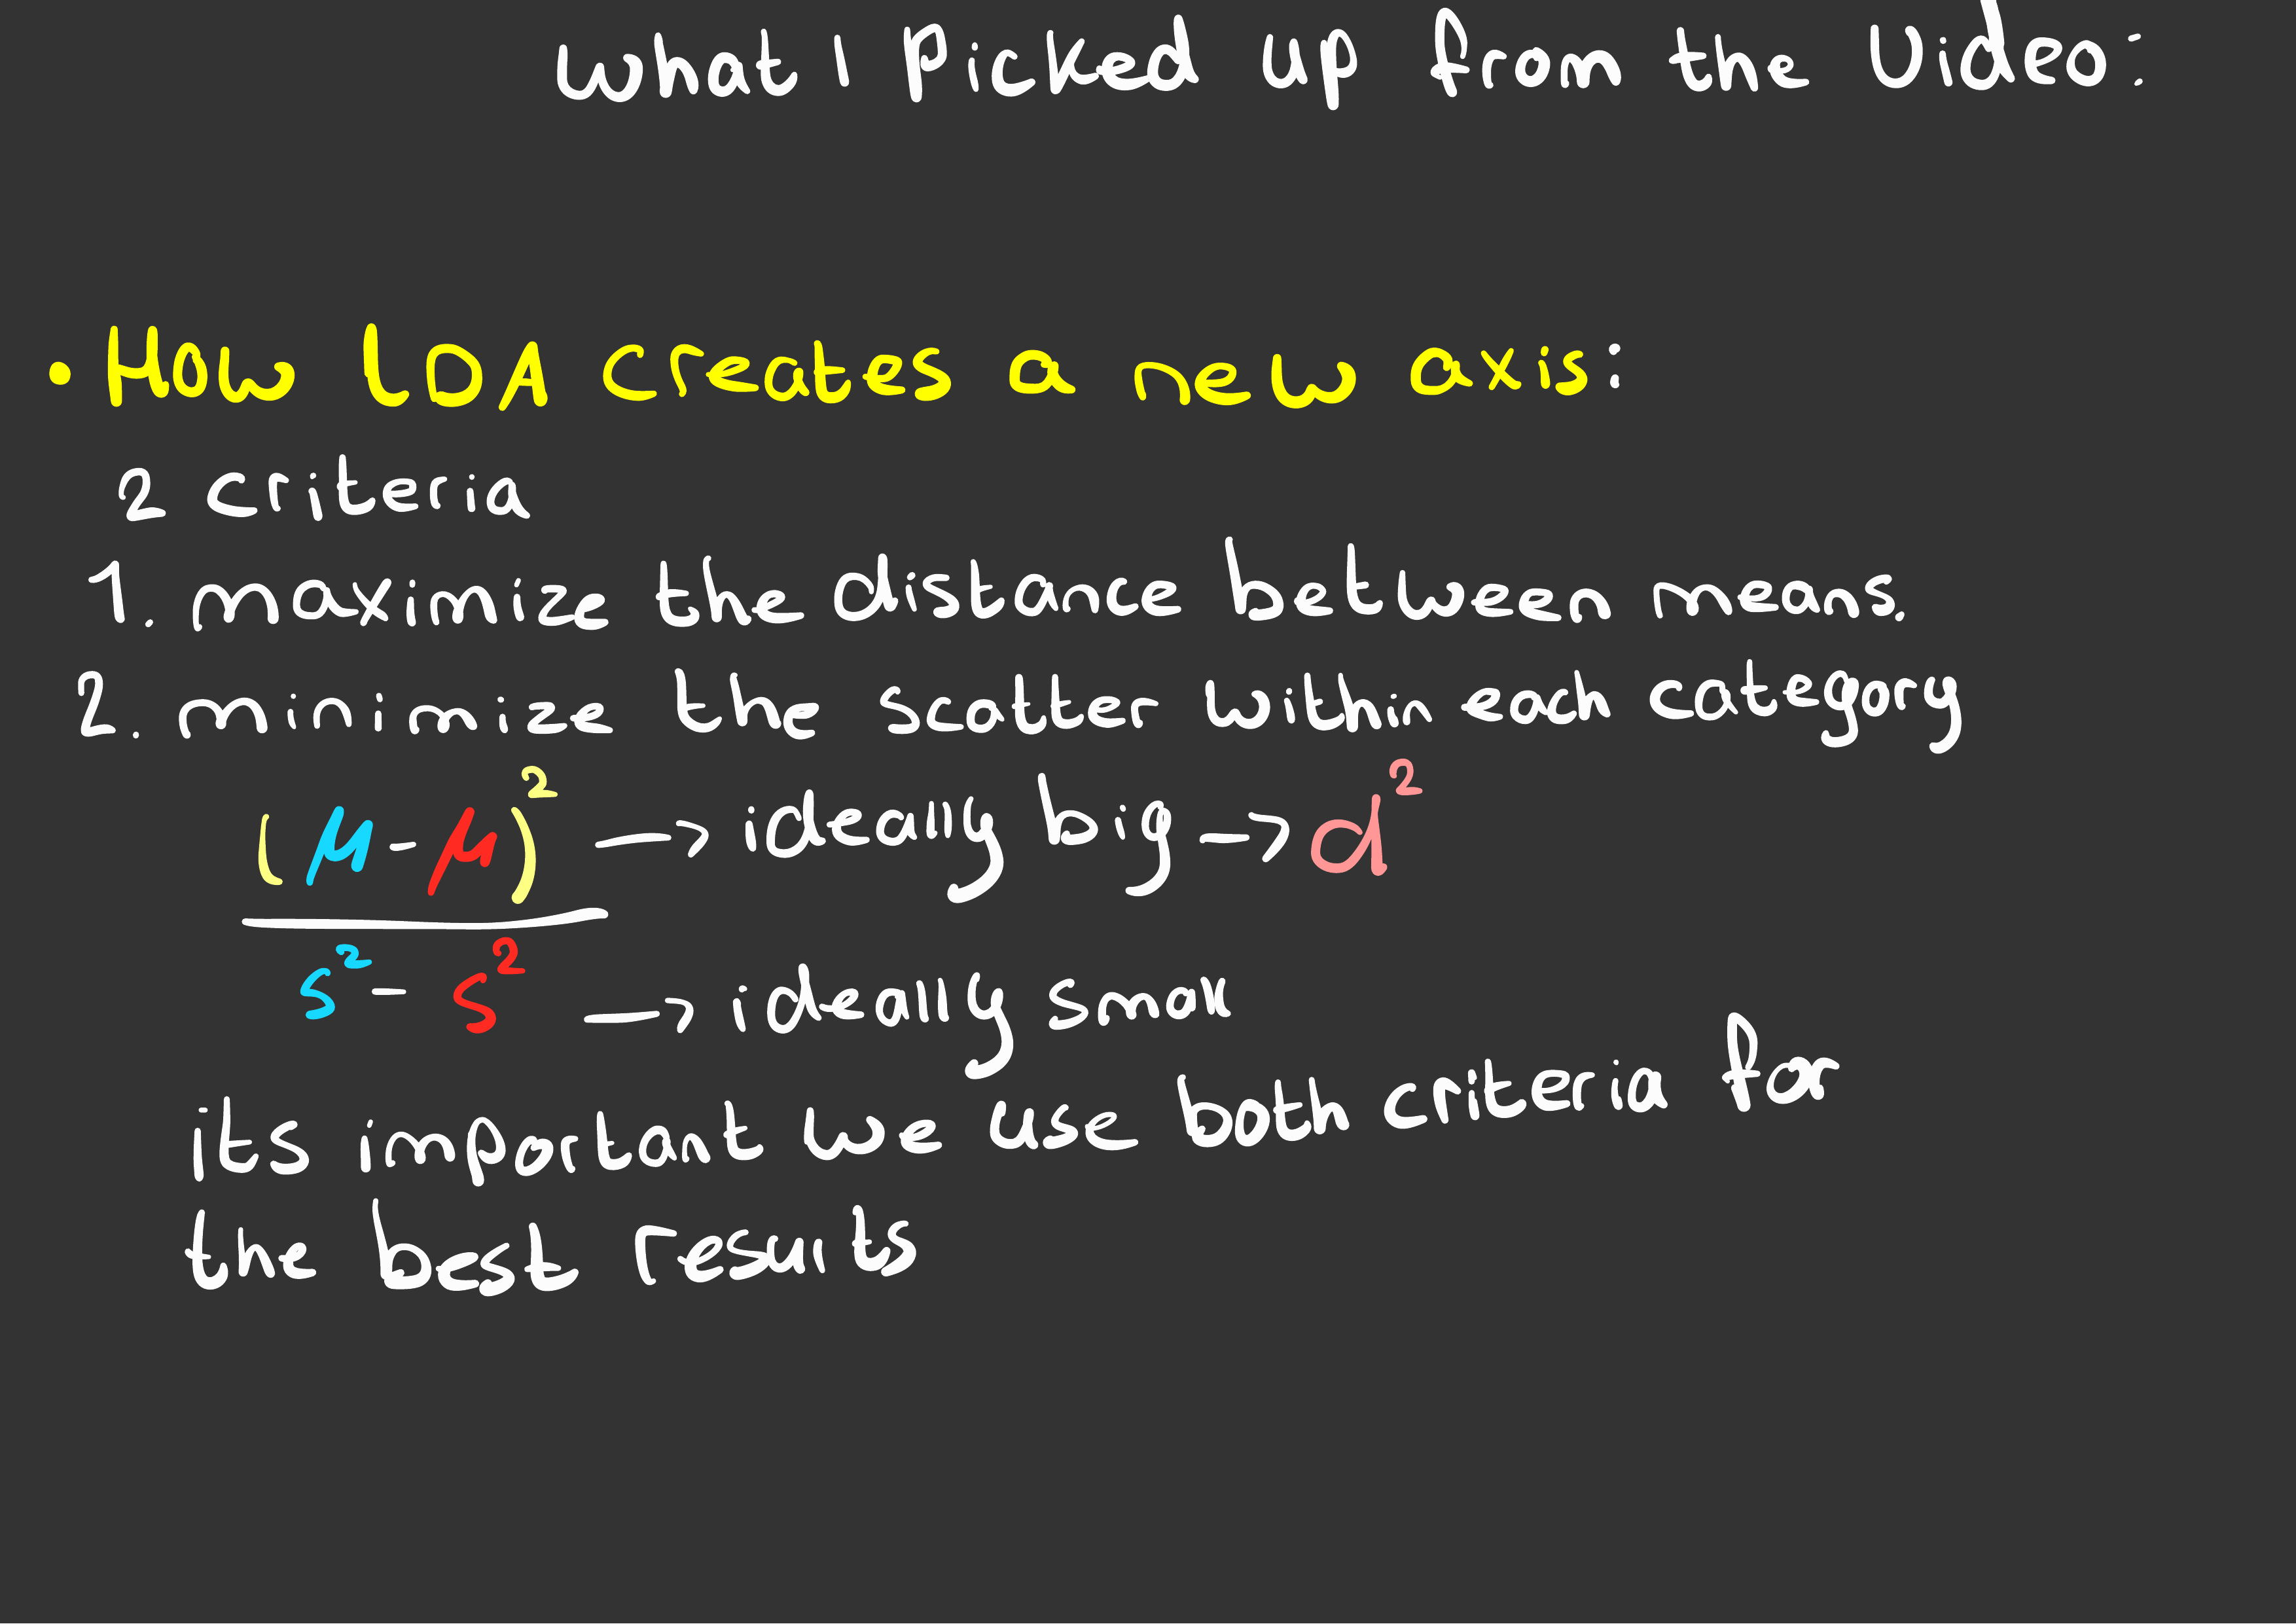 What I Picked up from the Video:
• How LDA creates a new axis:
2 criteria
1. maximize the distance between means.
2. minimize the scatter within each category
(μ-μ)² → ideally big → d²
s² - s² → ideally small
its important we use both criteria for
the best results